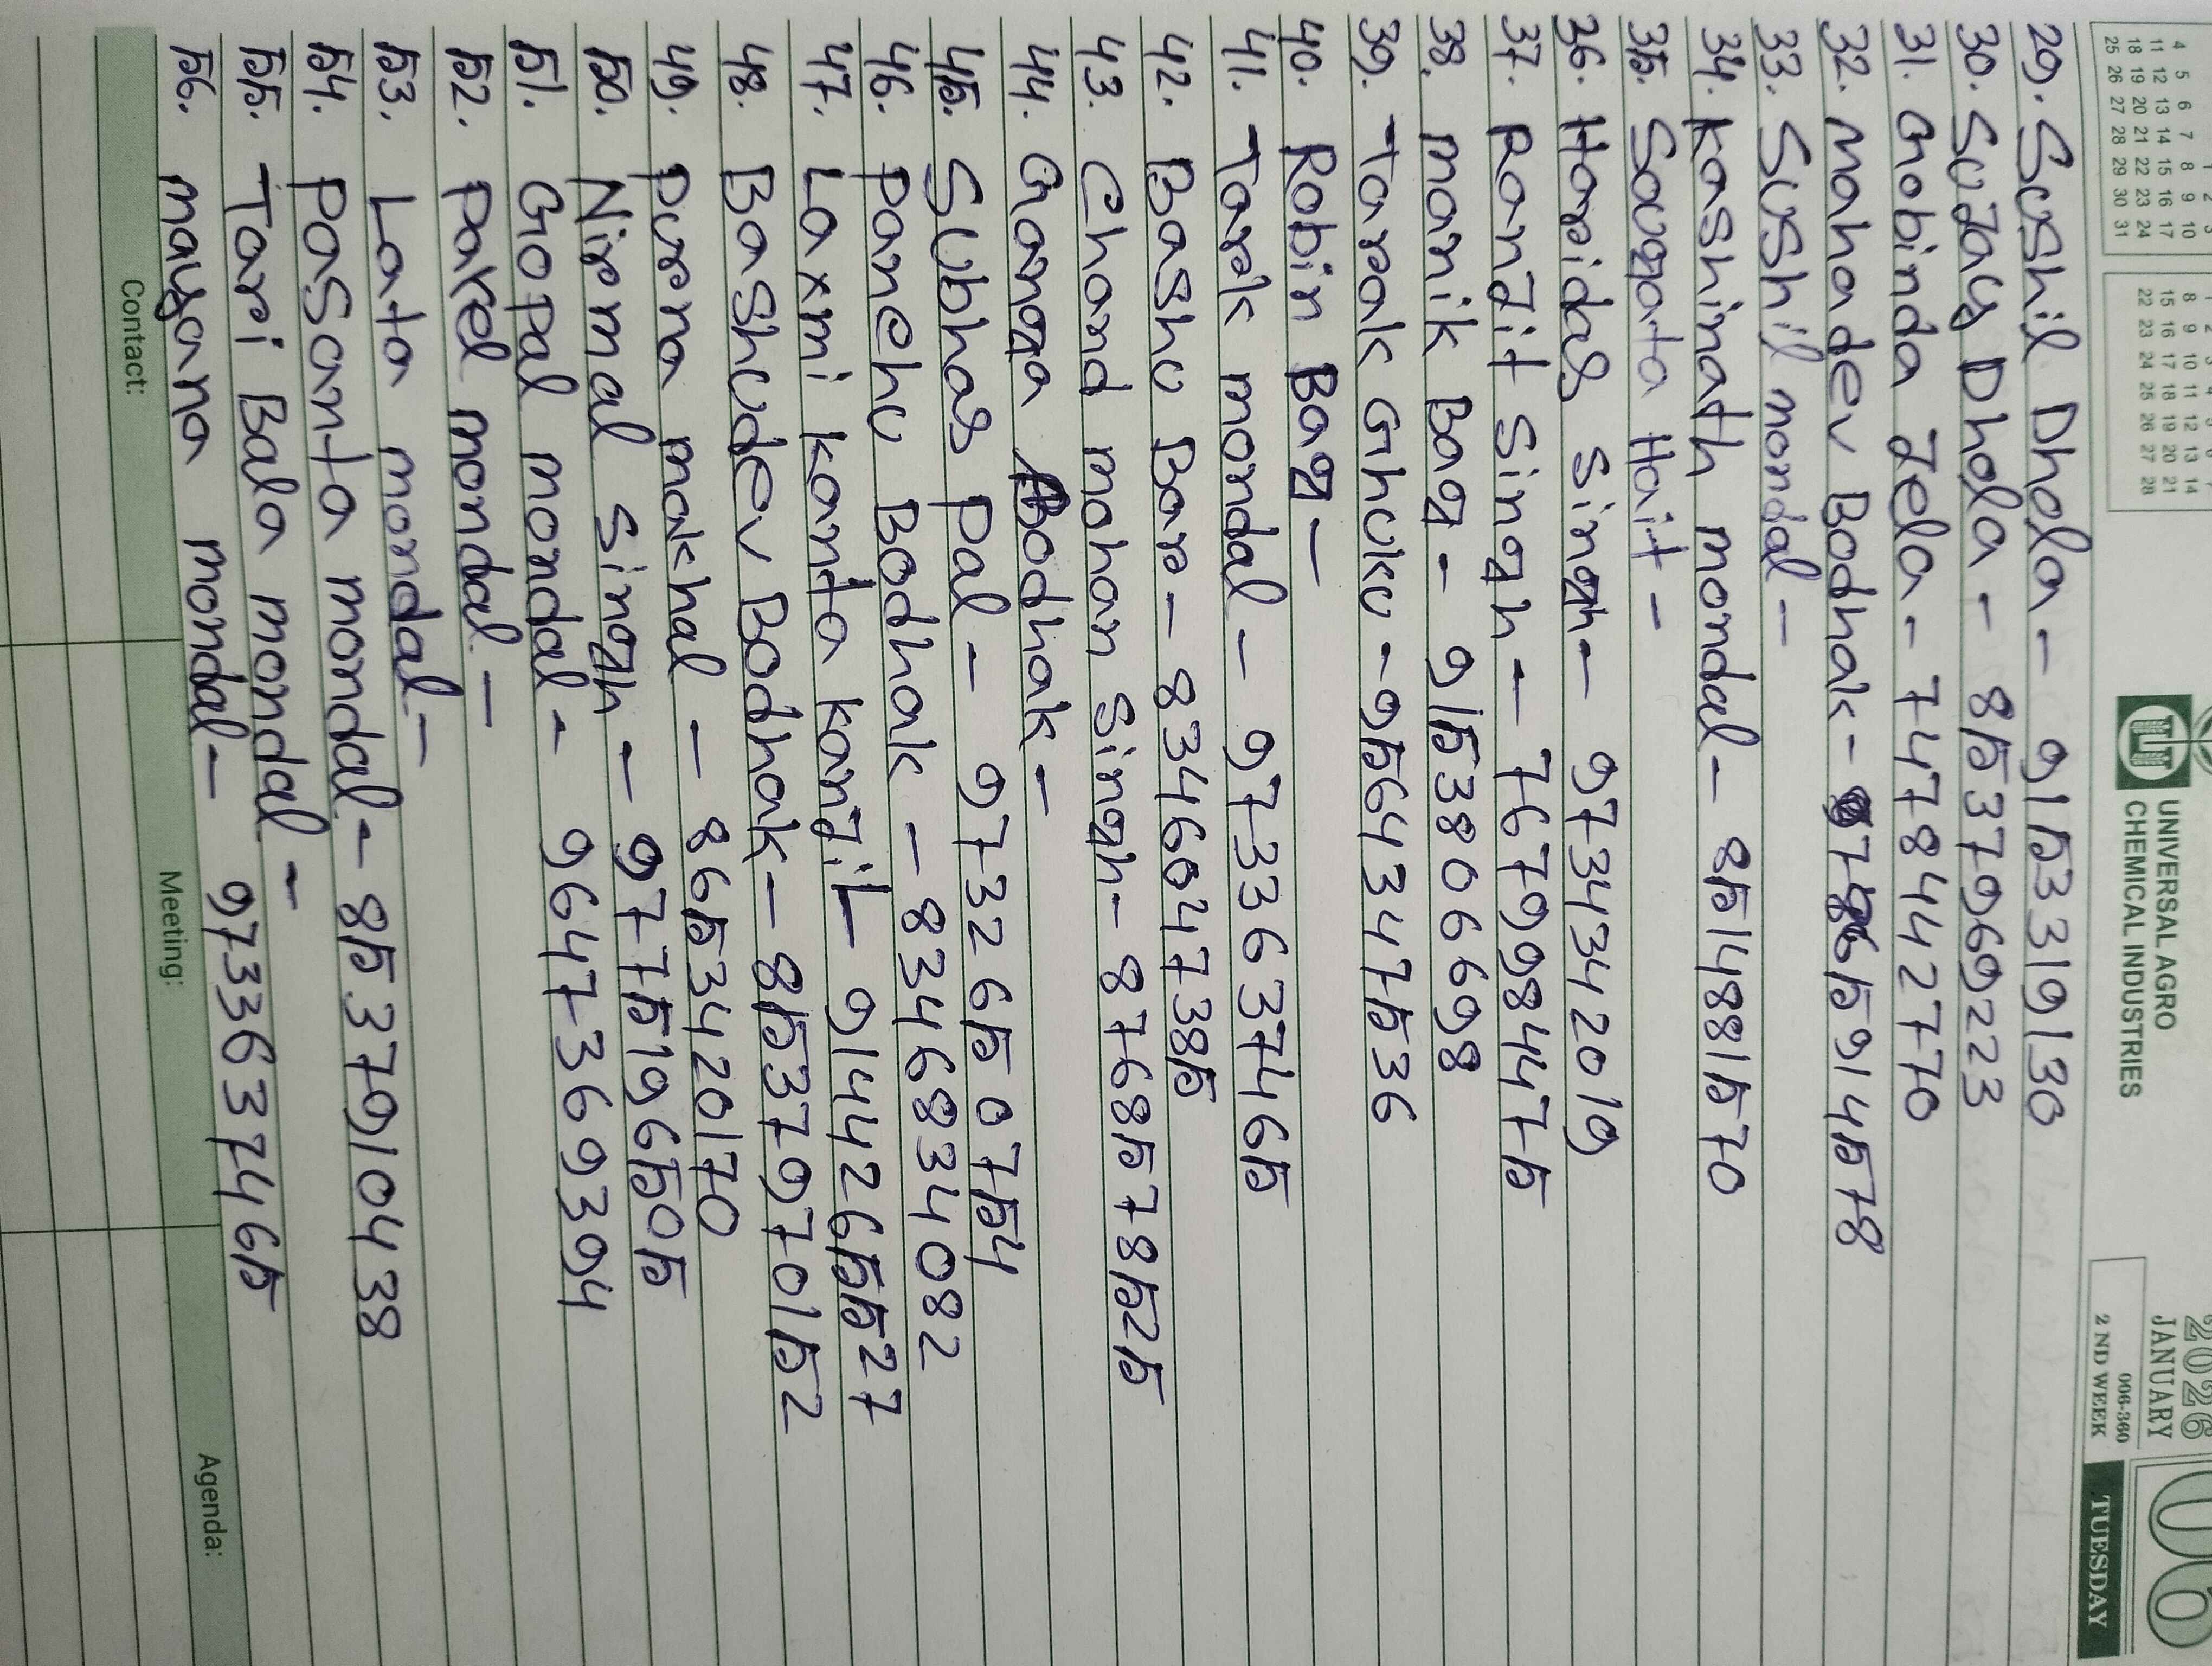 2026
JANUARY
006-360
2 ND WEEK
06
TUESDAY
UNIVERSAL AGRO
CHEMICAL INDUSTRIES
4 5 6 7 8 9 10
11 12 13 14 15 16 17
18 19 20 21 22 23 24
25 26 27 28 29 30 31
8 9 10 11 12 13 14
15 16 17 18 19 20 21
22 23 24 25 26 27 28
29. Sushil Dhola - 9153319130
30. Sujay Dhola - 8537969223
31. Gobinda Jela - 7478442770
32. Mahadev Bodhak -
33. Sushil mondal -
34. Kashinath mondal - 8514881570
35. Sougata Hait -
36. Haridas Singh - 9734342019
37. Ranjit Singh - 7679984475
38. manik Bag - 9153806698
39. Tarak Ghuku - 9564347536
40. Robin Bag -
41. Tarak mondal - 9733637465
42. Bashu Bar - 8346047385
43. Chand mohan Singh - 8768578525
44. Ganga Bodhak -
45. Subhas Pal - 9732650754
46. Panchu Bodhak - 8346834082
47. Laxmi kanta kanjil - 9144265527
48. Bashudev Bodhak - 8537970152
49. Purna makhal - 8653420170
50. Nirmal Singh - 9775196505
51. Gopal mondal - 9647369394
52. Parel mondal -
53. Lata mondal -
54. Pasanta mondal - 8537910438
55. Tari Bala mondal -
56. mayana mondal - 9733637465
Contact: Meeting: Agenda: